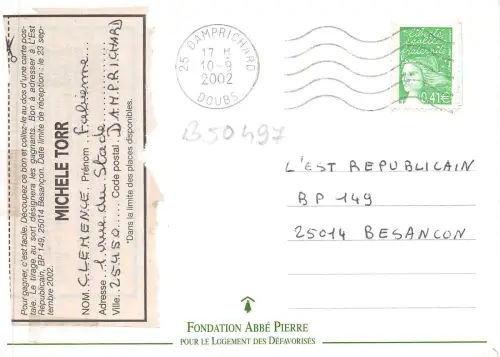 Pour gagner, c'est facile. Découpez ce bon et collez-le au dos d'une carte pos-
tale. Le tirage au sort désignera les gagnants. Bon à adresser à L'Est
Républicain, BP 149, 25014 Besançon. Date limite de réception : le 23 sep-
tembre 2002.
MICHELE TORR
NOM CLEMENCE Prénom Fabienne
Adresse 1 rue du Stade
Ville 25450 Code postal DAMPRICHARD
*Dans la limite des places disponibles.
25 DAMPRICHARD
17 H
10-9
2002
DOUBS
0,41€
B50497
L'EST REPUBLICAIN
BP 149
25014 BESANCON
FONDATION ABBÉ PIERRE
POUR LE LOGEMENT DES DÉFAVORISÉS